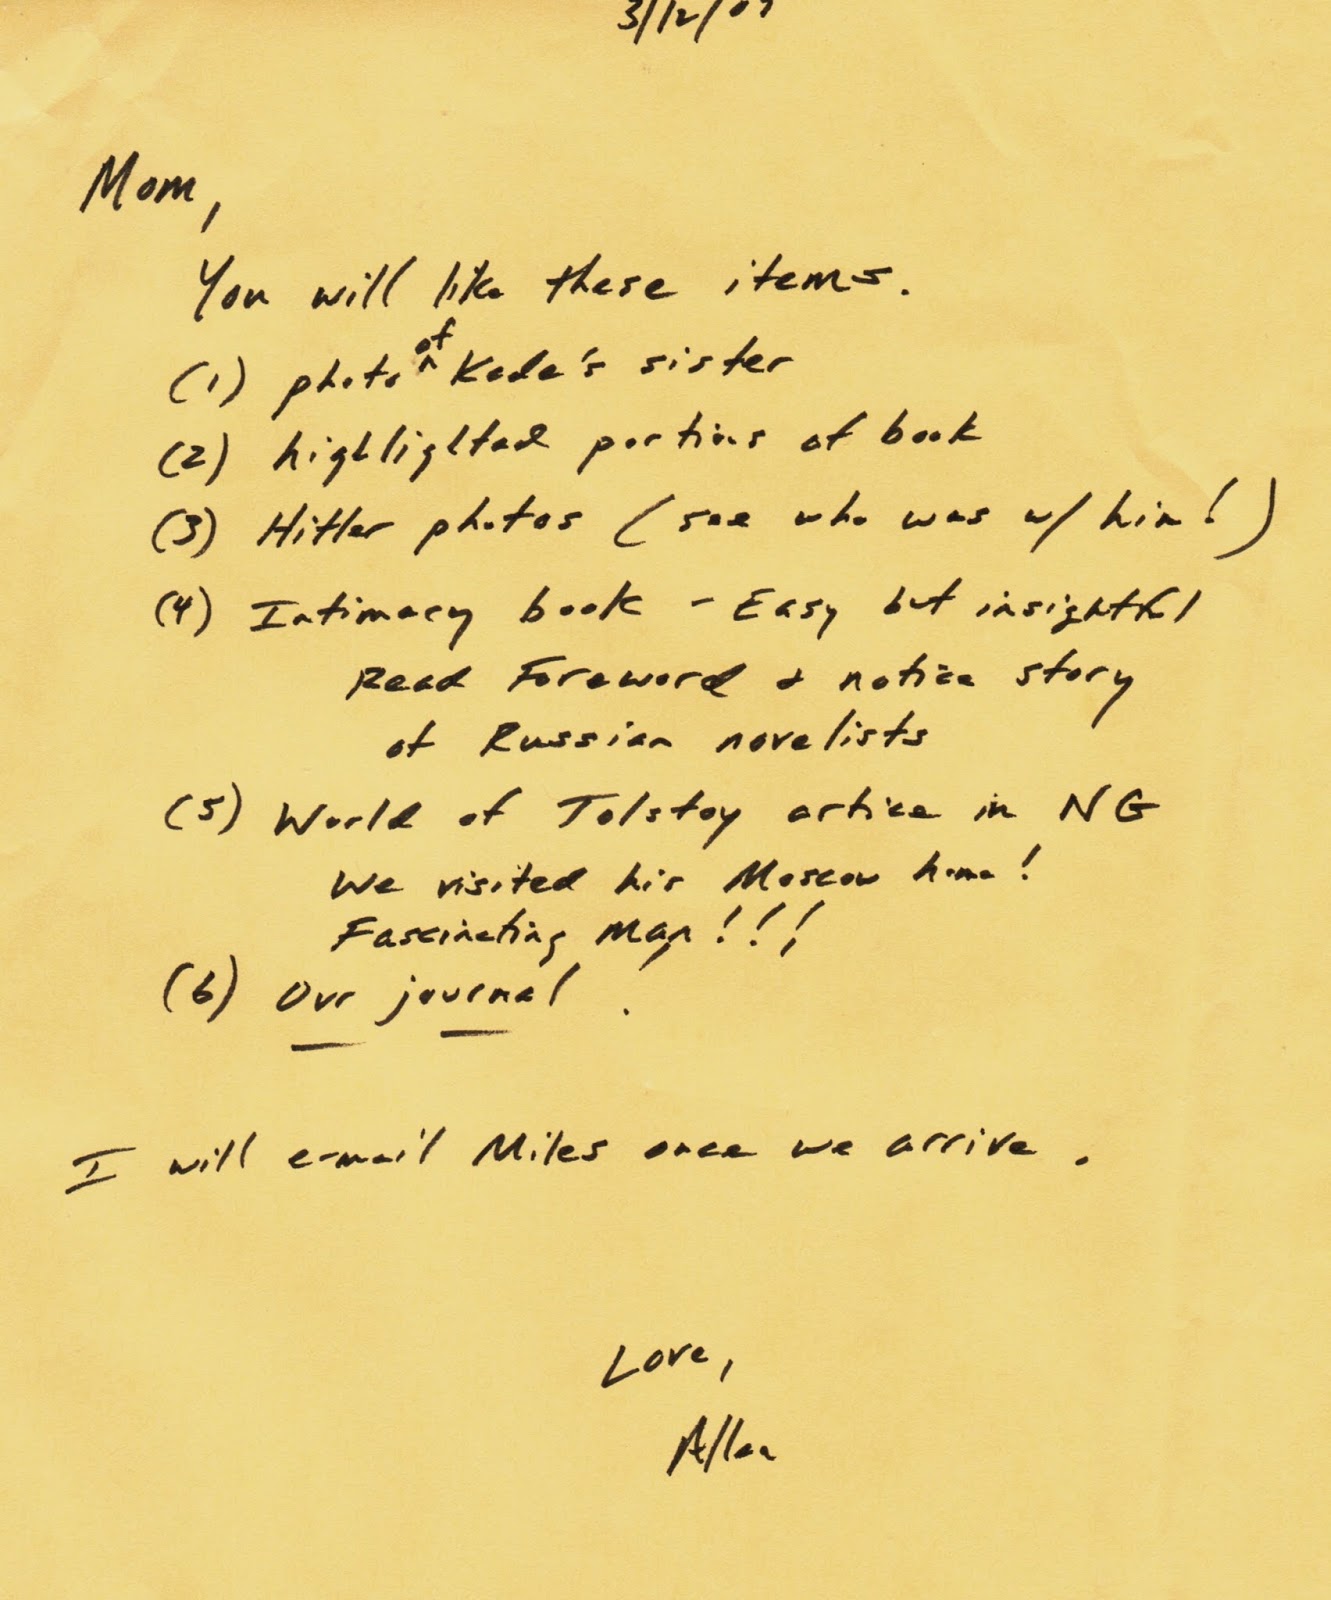 3/12/07
Mom,
You will like these items.
(1) photo of Kade's sister
(2) highlighted portions of book
(3) Hitler photos (see who was w/ him!)
(4) Intimacy book - Easy but insightful
Read Foreword & notice story
of Russian novelists
(5) World of Tolstoy artice in NG
We visited his Moscow home!
Fascinating man!!!
(6) Our journal!
I will e-mail Miles once we arrive.
Love,
Allen